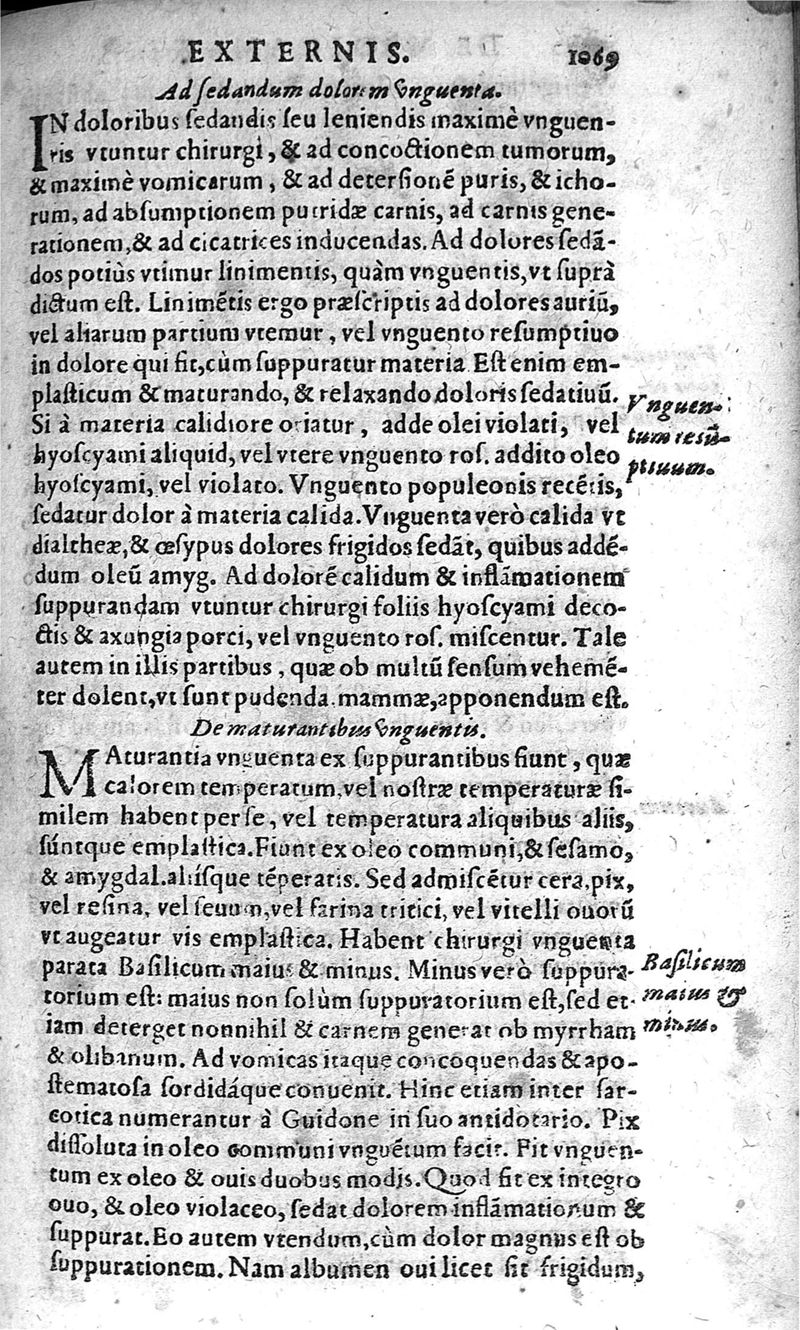 EXTERNIS. 1069
Ad sedandum dolorem vnguenta.
IN doloribus ſedandis ſeu leniendis maximè vnguen-
ris vtuntur chirurgi, & ad concoctionem tumorum,
& maximè vomicarum, & ad deterſionẽ puris, & icho-
rum, ad abſumptionem putridæ carnis, ad carnis gene-
rationem, & ad cicatrices inducendas. Ad dolores ſedã-
dos potiùs vtimur linimentis, quàm vnguentis, vt ſuprà
dictum eſt. Linimẽtis ergo præſcriptis ad dolores auriũ,
vel aliarum partium vtemur, vel vnguento reſumptiuo
in dolore qui fit, cùm ſuppuratur materia. Eſt enim em-
plaſticum & maturando, & relaxando doloris ſedatiuũ.
Vnguen-
tum resũ-
ptiuum.
Si à materia calidiore oriatur, adde olei violati, vel
hyoſcyami aliquid, vel vtere vnguento roſ. addito oleo
hyoſcyami, vel violato. Vnguento populeonis recẽtis,
ſedatur dolor à materia calida. Vnguenta verò calida vt
dialtheæ, & œſypus dolores frigidos ſedãt, quibus addẽ-
dum oleũ amyg. Ad dolorẽ calidum & inflãmationem
ſuppurandam vtuntur chirurgi foliis hyoſcyami deco-
ctis & axungia porci, vel vnguento roſ. miſcentur. Tale
autem in illis partibus, quæ ob multũ ſenſum vehemẽ-
ter dolent, vt ſunt pudenda mammæ, apponendum eſt.
De maturantibus vnguentis.
MAturantia vnguenta ex ſuppurantibus fiunt, quæ
calorem temperatum, vel noſtræ temperaturæ ſi-
milem habent per ſe, vel temperatura aliquibus aliis,
ſúntque emplaſtica. Fiunt ex oleo communi, & ſeſamo,
& amygdal. aliíſque tẽperatis. Sed admiſcẽtur cera, pix,
vel reſina, vel ſeuum, vel farina tritici, vel vitelli ouorũ
vt augeatur vis emplaſtica. Habent chirurgi vnguenta
parata Baſilicum maius & minus. Minus verò ſuppura-
Baſilicum
maius &
minus.
torium eſt: maius non ſolùm ſuppuratorium eſt, ſed et-
iam deterget nonnihil & carnem generat ob myrrham
& olibanum. Ad vomicas itaque concoquendas & apo-
ſtematoſa ſordidáque conuenit. Hinc etiam inter ſar-
cotica numerantur à Guidone in ſuo antidotario. Pix
diſſoluta in oleo communi vnguẽtum facit. Fit vnguen-
tum ex oleo & ouis duobus modis. Quod fit ex integro
ouo, & oleo violaceo, ſedat dolorem inflãmationum &
ſuppurat. Eo autem vtendum, cùm dolor magnus eſt ob
ſuppurationem. Nam albumen oui licet ſit frigidum,